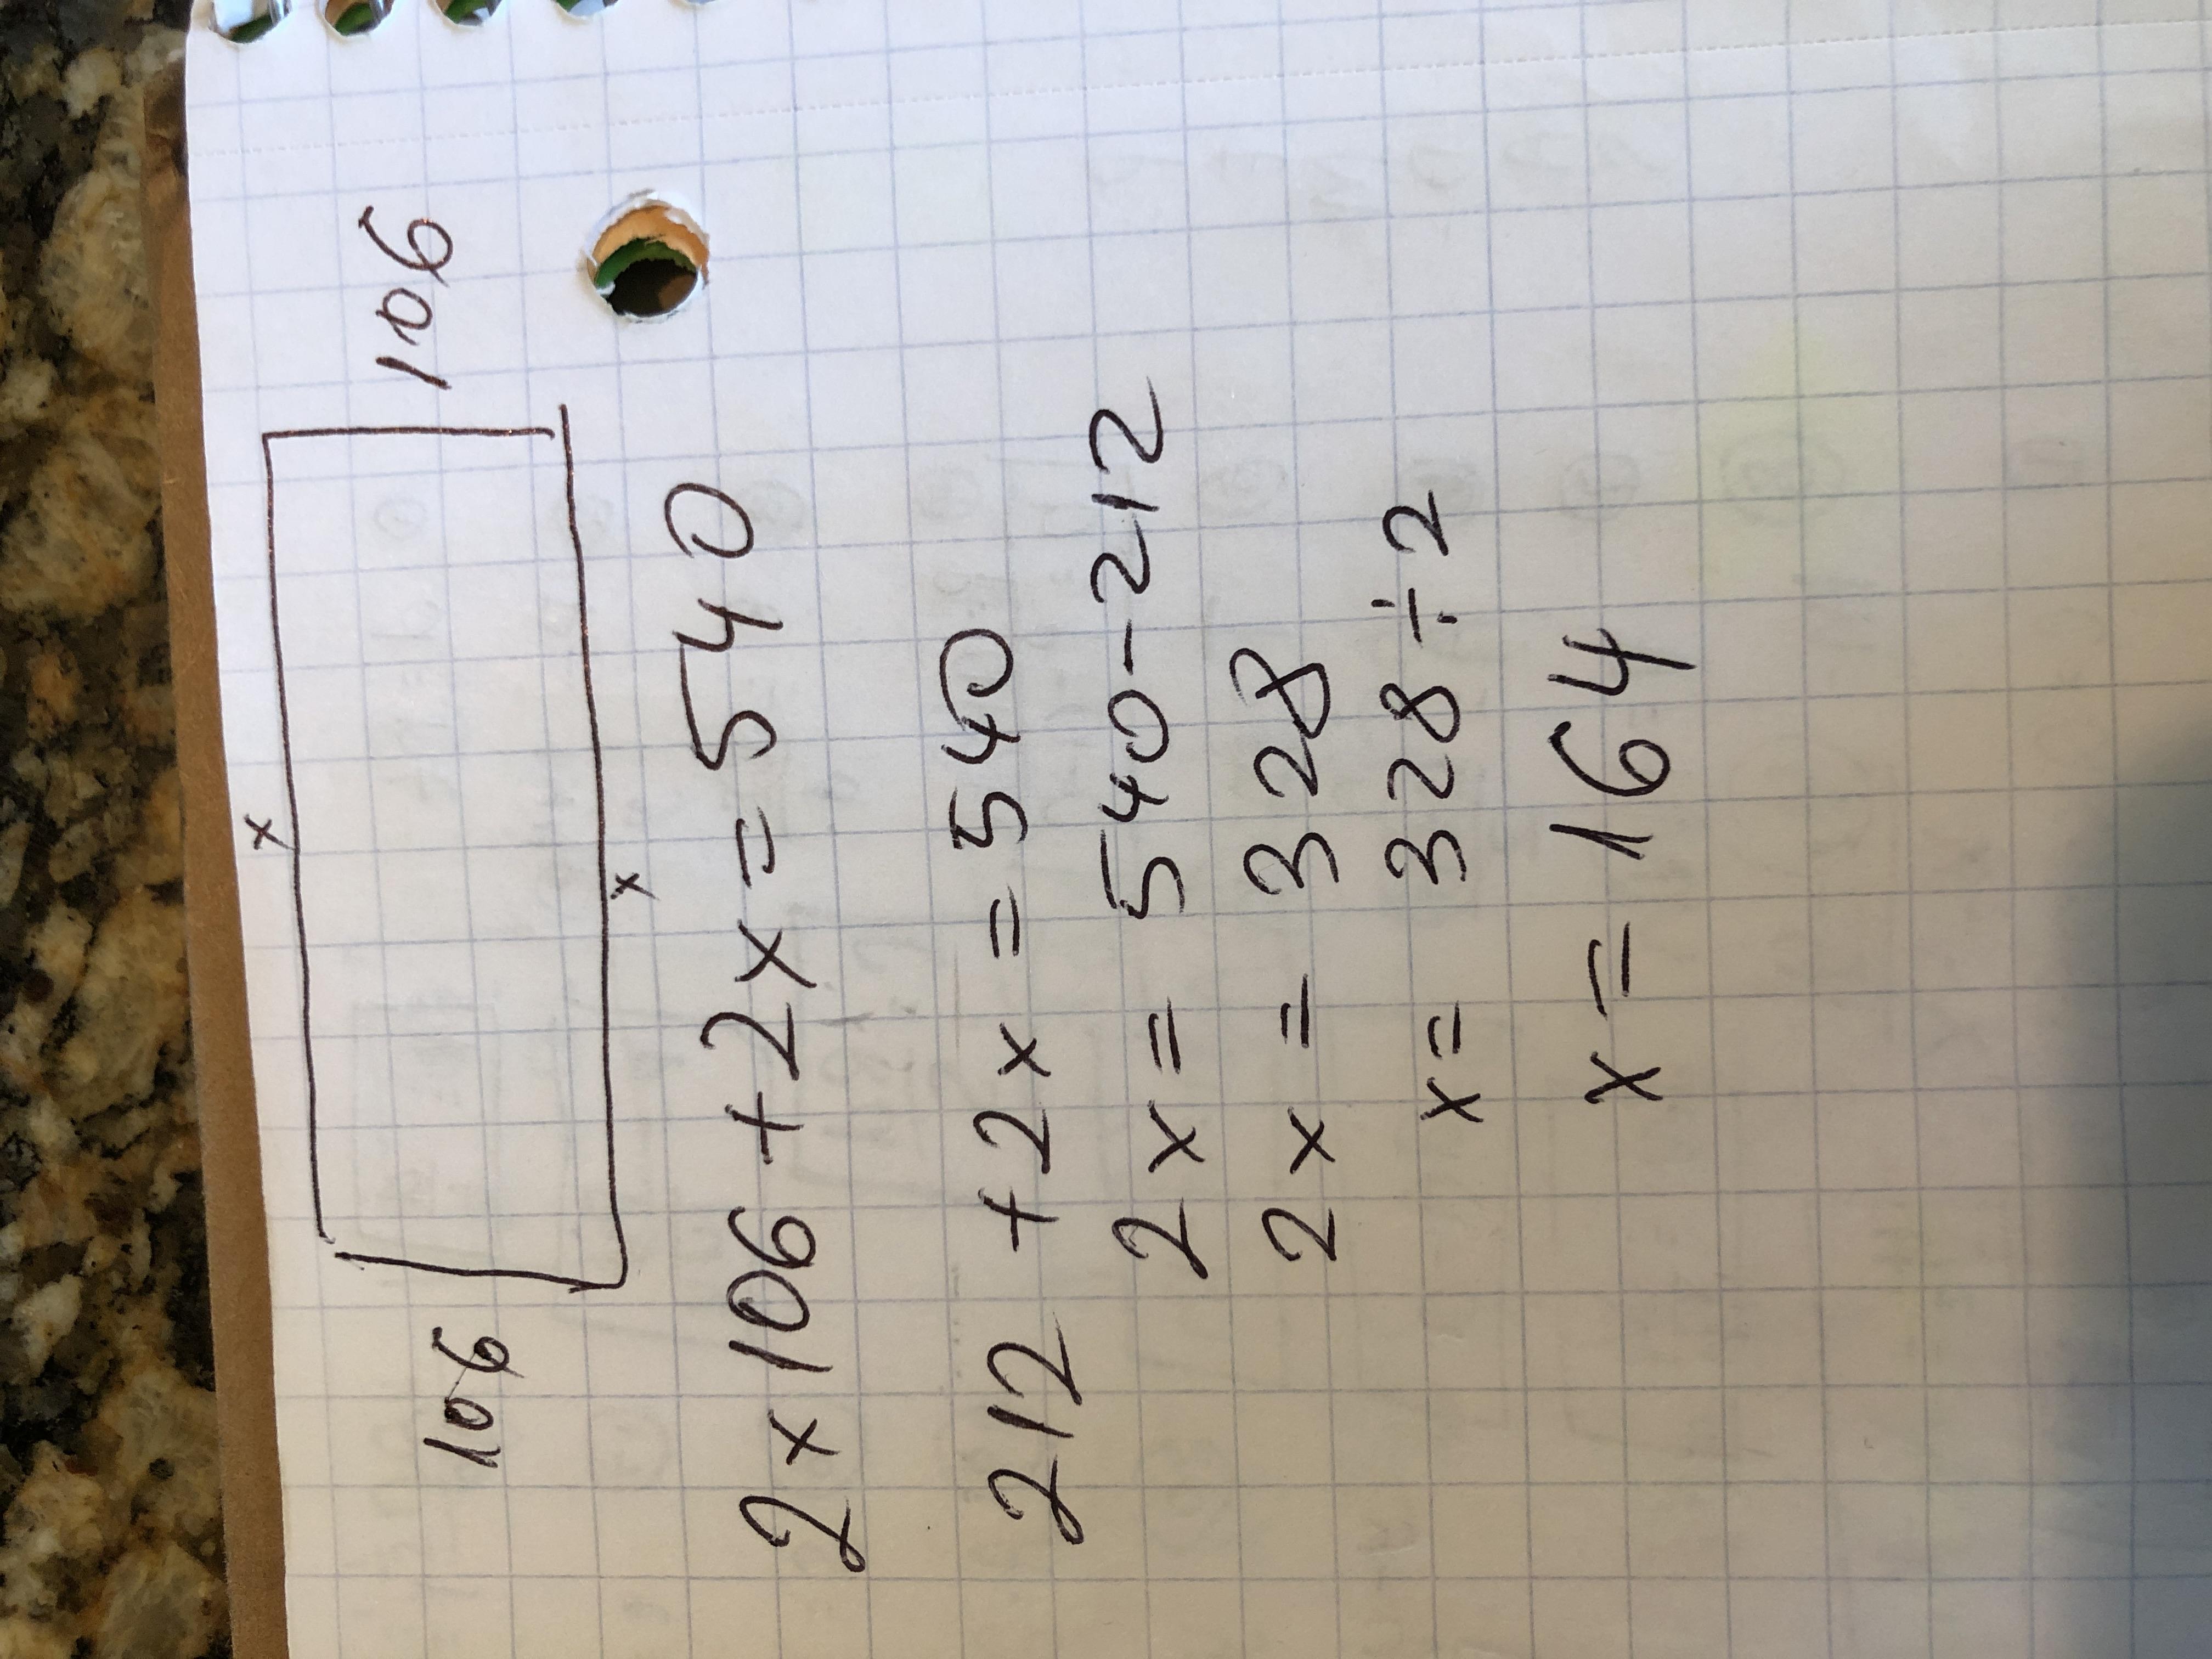 x
106
106
x
2 x 106 + 2x = 540
212 + 2x = 540
2x = 540 - 212
2x = 328
x = 328 ÷ 2
x = 164